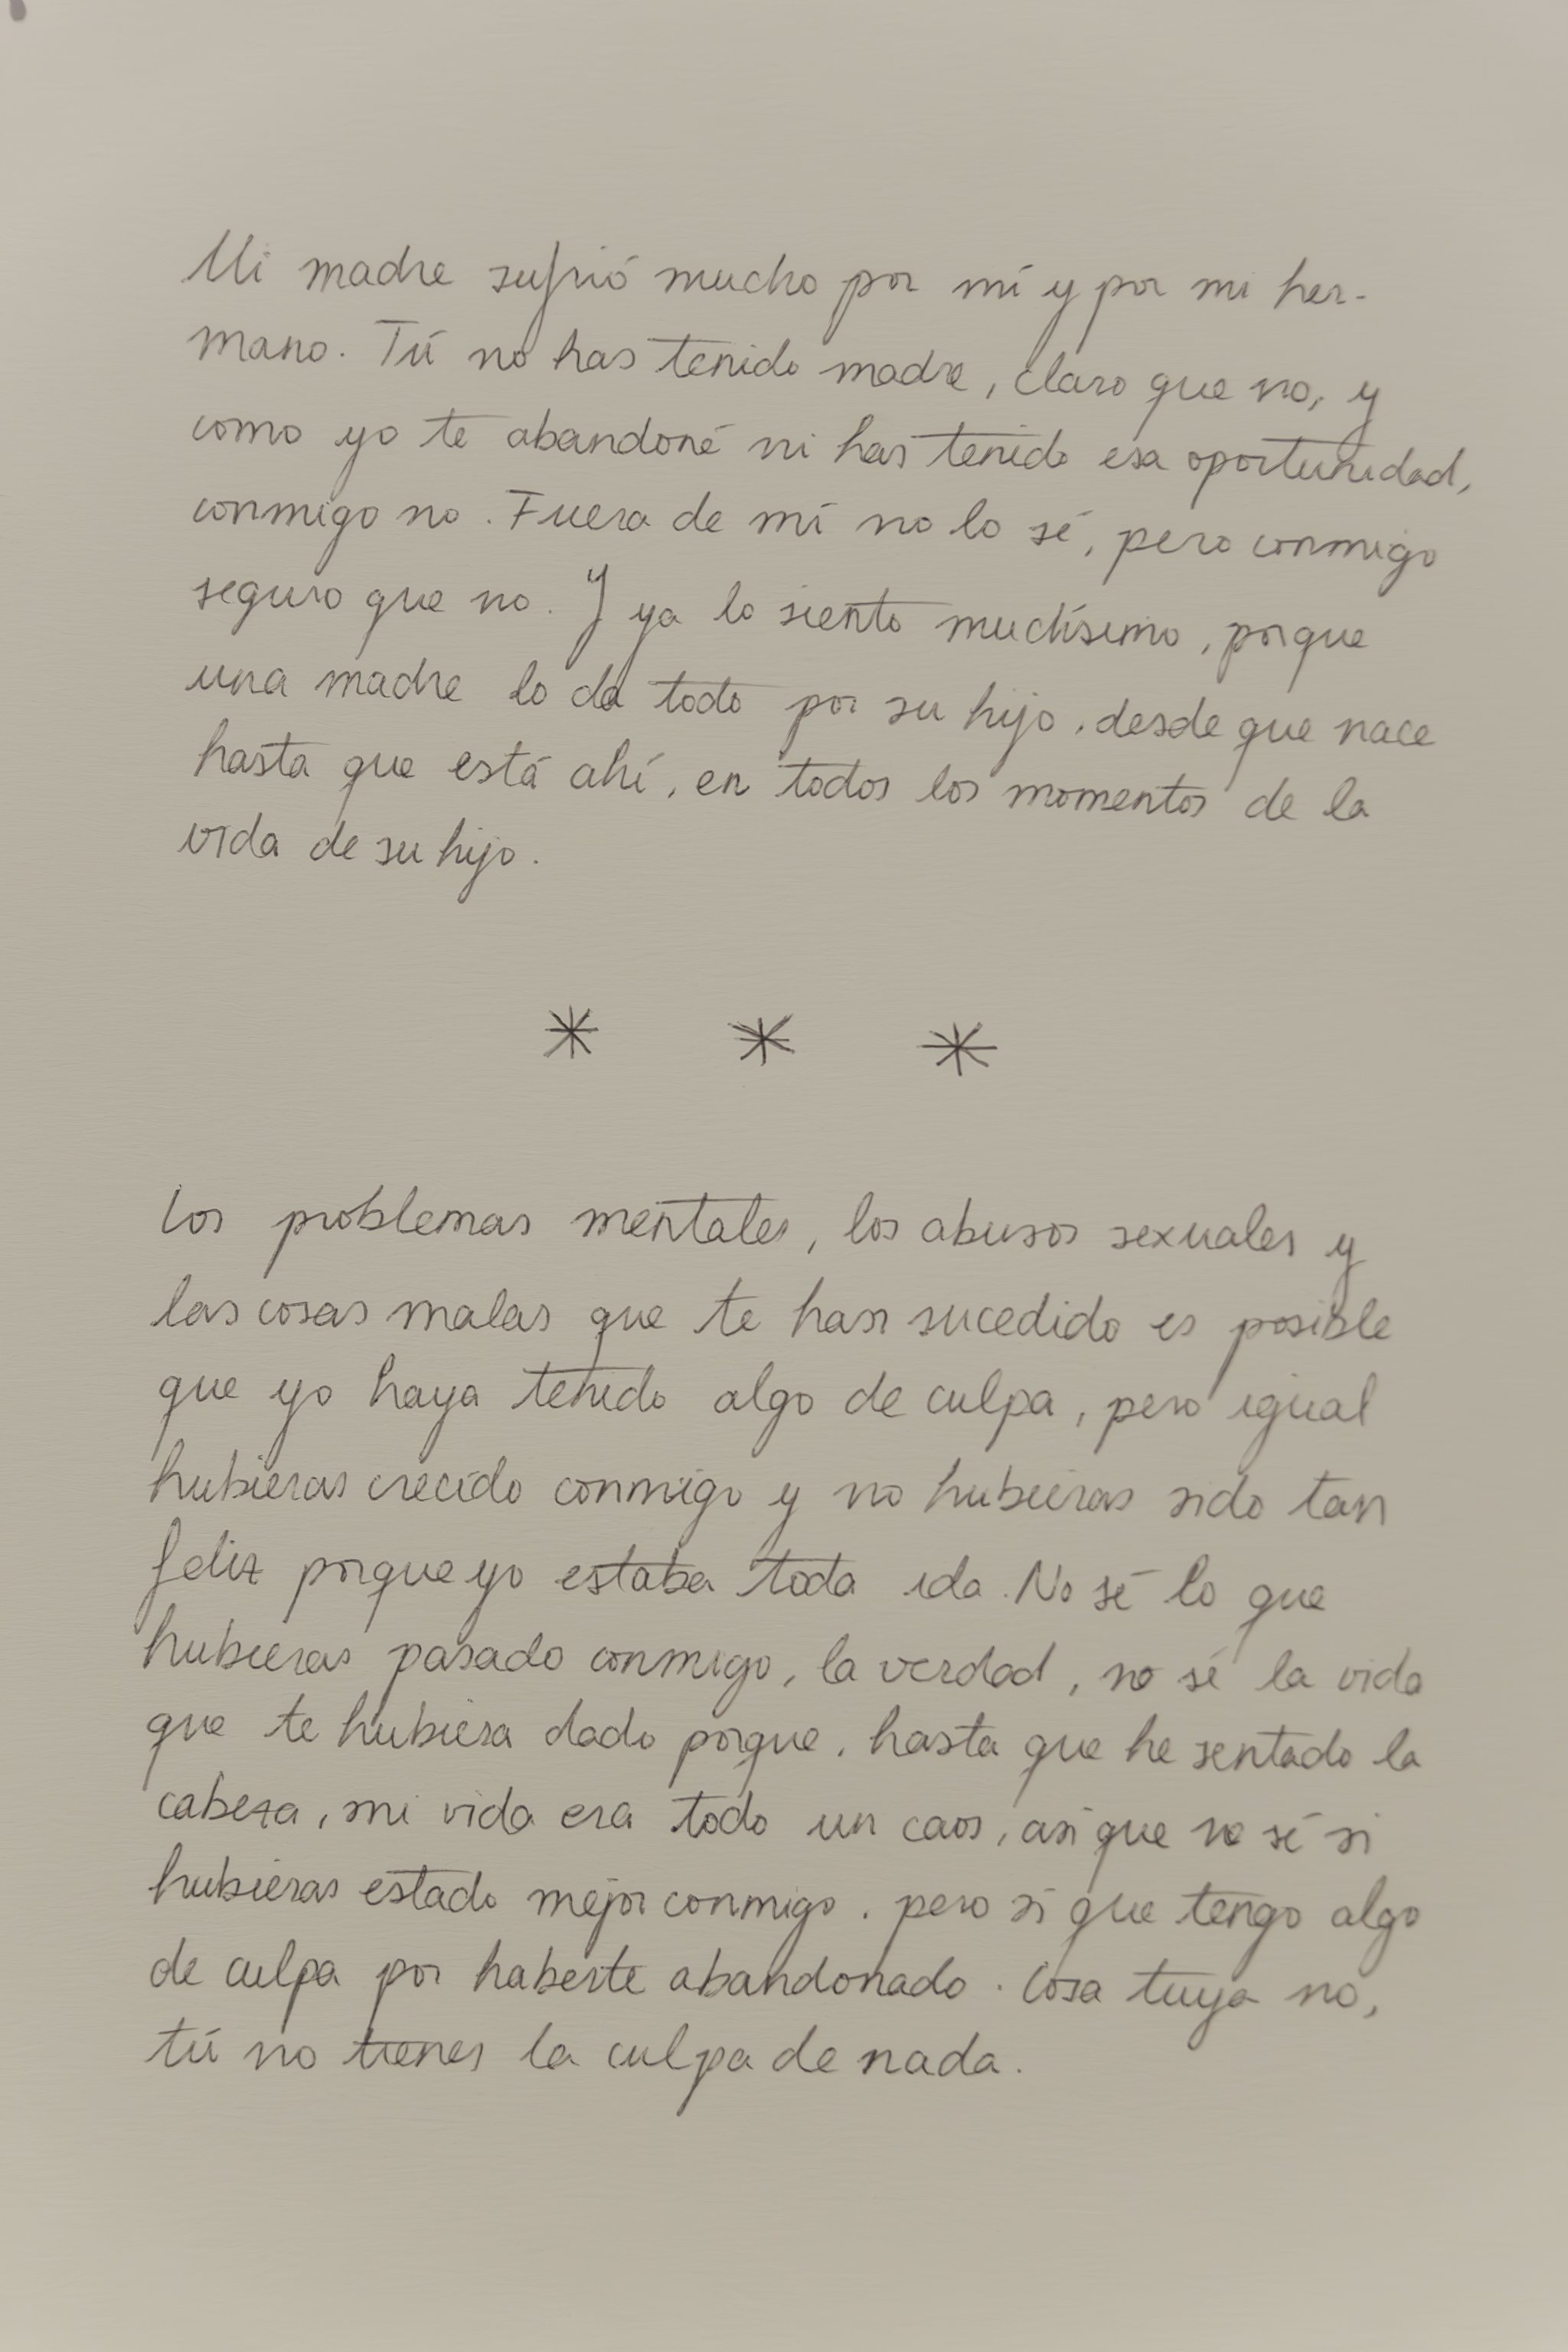 Mi madre sufrió mucho por mí y por mi her-
mano. Tú no has tenido madre, claro que no, y
como yo te abandoné ni has tenido esa oportunidad,
conmigo no. Fuera de mí no lo sé, pero conmigo
seguro que no. Y ya lo siento muchísimo, porque
una madre lo da todo por su hijo, desde que nace
hasta que está ahí, en todos los momentos de la
vida de su hijo.
* * *
Los problemas mentales, los abusos sexuales y
las cosas malas que te han sucedido es posible
que yo haya tenido algo de culpa, pero igual
hubieras crecido conmigo y no hubieras sido tan
feliz porque yo estaba toda ida. No sé lo que
hubieras pasado conmigo, la verdad, no sé la vida
que te hubiera dado porque, hasta que he sentado la
cabeza, mi vida era todo un caos, así que no sé si
hubieras estado mejor conmigo, pero sí que tengo algo
de culpa por haberte abandonado. Cosa tuya no,
tú no tienes la culpa de nada.